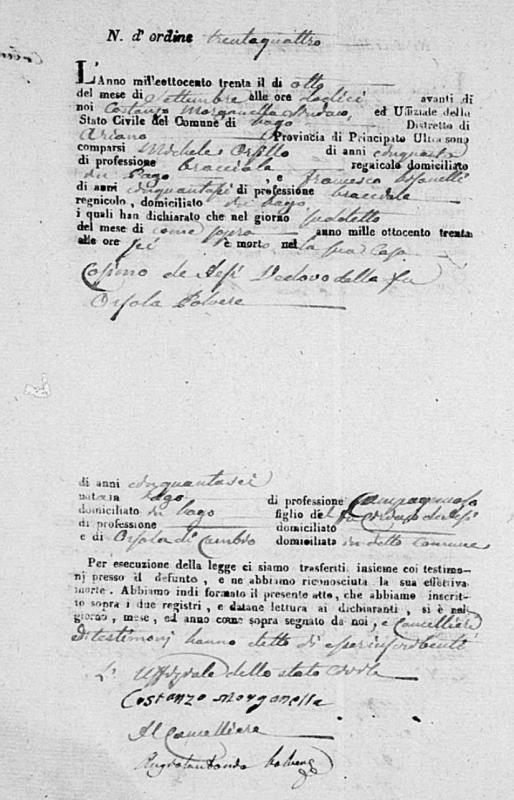 N. d'ordine trentaquattro
L'Anno mill'ottocento trenta il dì otto
del mese di Settembre alle ore dodici avanti di
noi Costanzo Morganella Sindaco, ed Uffiziale dello
Stato Civile del Comune di Pago Distretto di
Ariano Provincia di Principato Ultra sono
comparsi Michele Orsillo di anni cinquanta
di professione bracciale regnicolo domiciliato
in Pago, e Francesco
di anni cinquantasei di professione bracciale
regnicolo, domiciliato in Pago
i quali han dichiarato che nel giorno sudetto
del mese di come sopra anno mille ottocento trenta
alle ore sei è morto nella sua Casa
Cosimo de Vedovo della fu
Orsola Polvere
di anni cinquantasei
nato in Pago di professione Campagnuolo
domiciliato in Pago figlio del fu
di professione domiciliato
e di Orsola di domiciliato in detto Comune
Per esecuzione della legge ci siamo trasferiti insieme coi testimo-
nj presso il defunto, e ne abbiamo riconosciuta la sua effettiva
morte. Abbiamo indi formato il presente atto, che abbiamo inscrit-
to sopra i due registri, e datane lettura ai dichiaranti, si è nel
giorno, mese, ed anno come sopra segnato da noi, e Cancelliere
di testimonj hanno detto di esser
L' Uffiziale dello stato Civile
Costanzo Morganella
Il Cancelliere